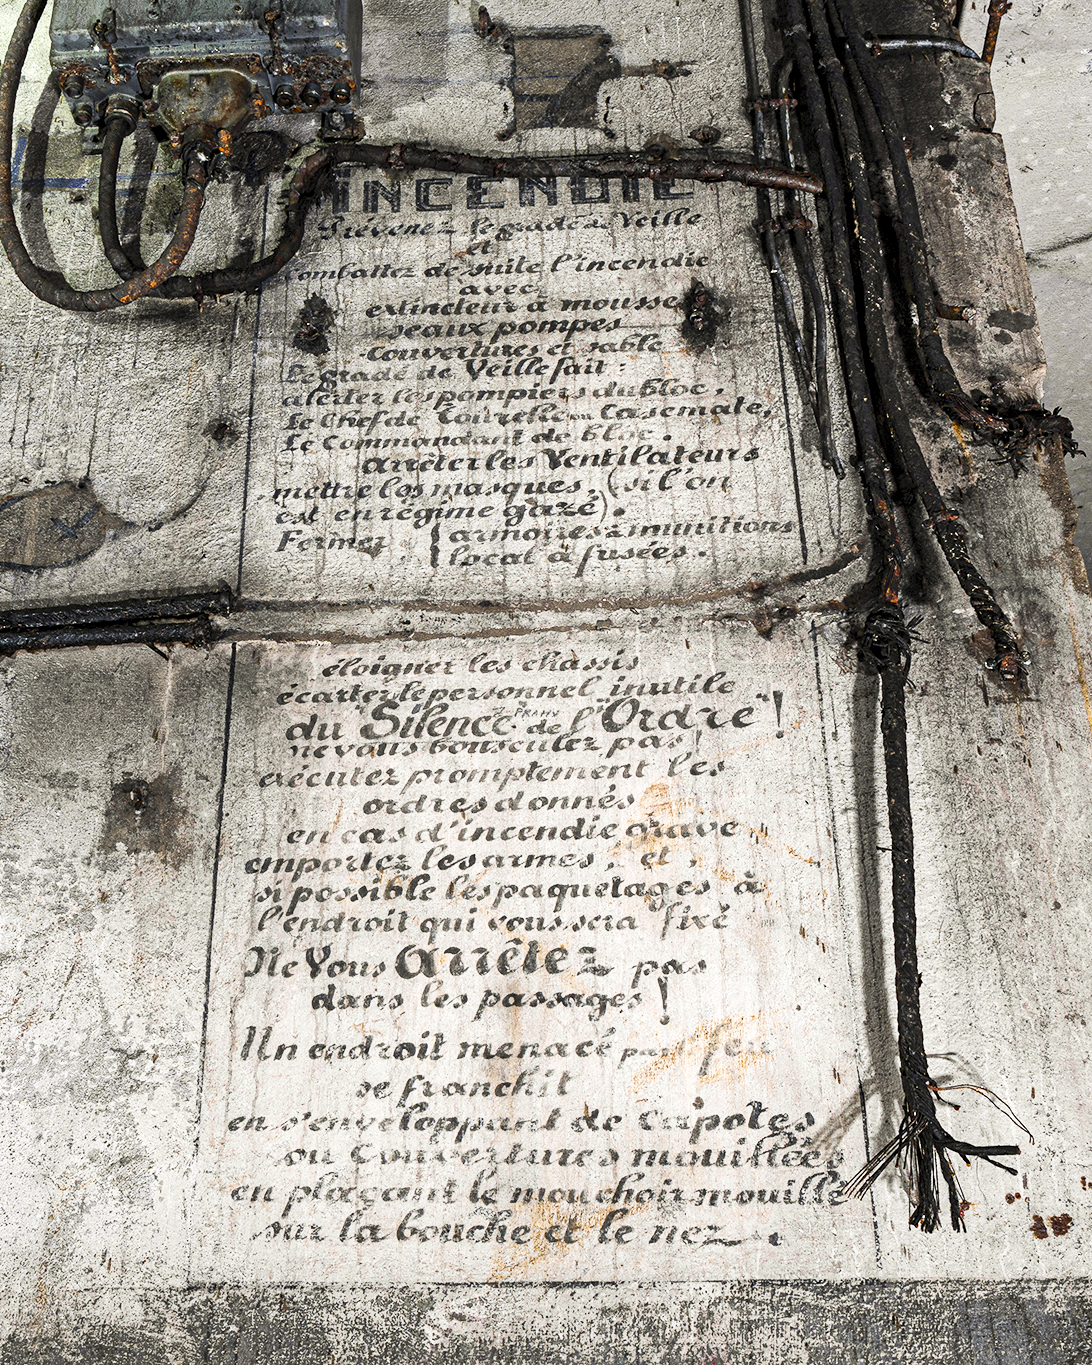 INCENDIE
Prévenez le gradé de Veille
et
Combattez de suite l'incendie
avec
extincteur à mousse
seaux pompes
couvertures et sable
Le gradé de Veille fait :
alerter les pompiers du bloc,
Le Chef de Tourelle ou Casemate,
Le Commandant de bloc.
arrêter les Ventilateurs
mettre les masques, (si l'on
est en régime gazé).
Fermer { armoires à munitions
local à fusées.
éloigner les chassis
écarter le personnel inutile
du "Silence" de l'"Ordre"!
ne vous bousculez pas!
exécutez promptement les
ordres donnés
en cas d'incendie grave,
emportez les armes, et,
si possible les paquetages à
l'endroit qui vous sera fixé
Ne Vous arrêtez pas
dans les passages!
Un endroit menacé par feu
se franchit
en s'enveloppant de Capotes
ou Couvertures mouillées
en plaçant le mouchoir mouillé
sur la bouche et le nez.